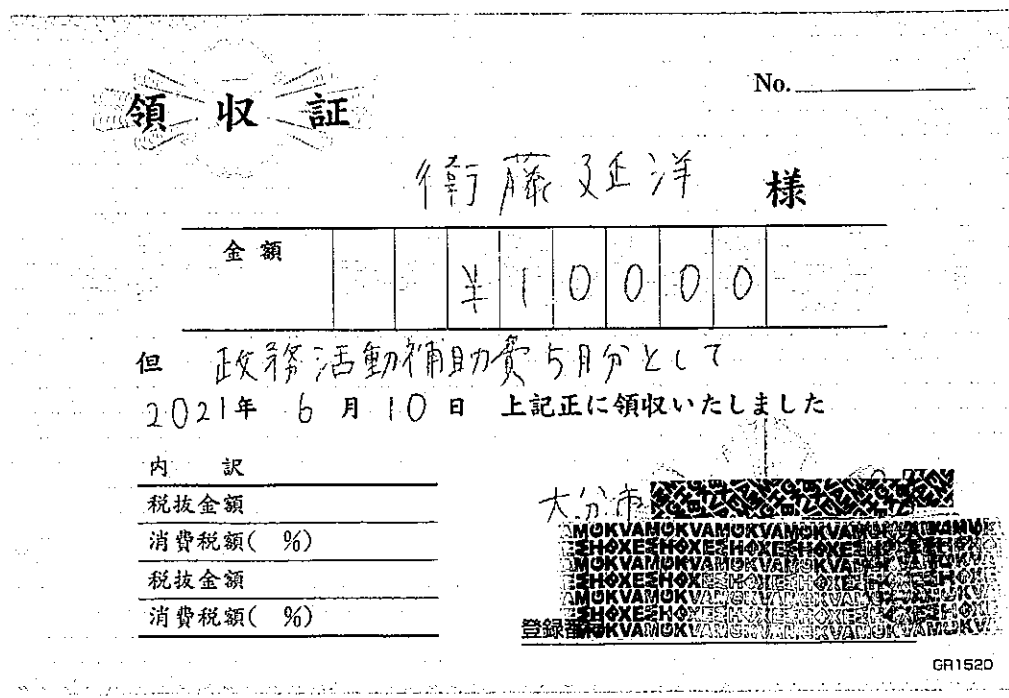 領収証
No.
衛藤延洋 様
金額 ¥10000
但 政務活動補助費5月分として
2021年 6月10日 上記正に領収いたしました
内 訳
税抜金額
消費税額( %)
税抜金額
消費税額( %)
大分市
登録番
GR1520